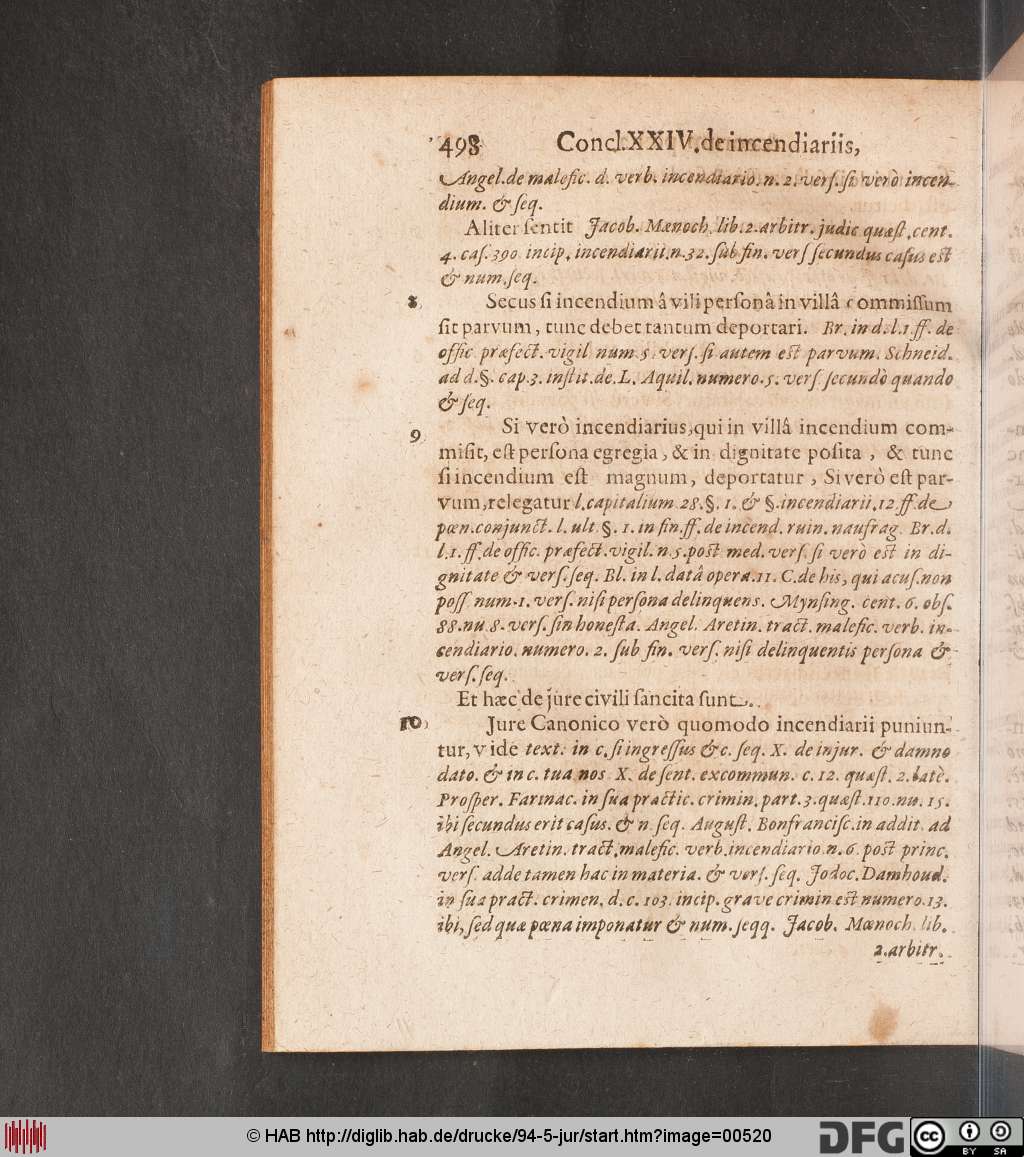 498 Concl. XXIV. de incendiariis,
Angel. de malefic. d. verb. incendiario. n. 2. verſ. ſi verò incen-
dium. & ſeq.
Aliter ſentit Jacob. Mænoch. lib. 2. arbitr. judic quæſt. cent.
4. caſ. 390 incip. incendiarii. n. 32. ſub fin. verſ ſecundus caſus est
& num. ſeq.
8 Secus ſi incendium â vili perſonâ in villâ commiſſum
ſit parvum, tunc debet tantum deportari. Br. in d. l. 1. ff. de
offic præfect. vigil num 5. verſ. ſi autem est parvum. Schneid.
ad d. §. cap. 3. inſtit. de L. Aquil. numero. 5. verſ ſecundò quando
& ſeq.
9 Si verò incendiarius, qui in villâ incendium com-
miſit, eſt perſona egregia, & in dignitate poſita, & tunc
ſi incendium eſt magnum, deportatur, Si verò eſt par-
vum, relegatur l. capitalium 28. §. 1. & §. incendiarii. 12 ff. de
pœn. conjunct. l. ult §. 1. in fin. ff. de incend. ruin. naufrag. Br. d.
l. 1. ff. de offic. præfect. vigil. n. 5. post med. verſ. ſi verò est in di-
gnitate & verſ. ſeq. Bl. in l. datâ opera. 11. C. de his, qui acuſ. non
poſſ num. 1. verſ. niſi perſona delinquens. Mynſing. cent. 6. obſ.
88. nu. 8. verſ. ſin honeſta. Angel. Aretin. tract. malefic. verb. in-
cendiario. numero. 2. ſub fin. verſ. niſi delinquentis perſona &
verſ. ſeq.
Et hæc de jure civili ſancita ſunt.
10 Jure Canonico verò quomodo incendiarii puniun-
tur, vide text. in c. ſi ingreſſus & c. ſeq. X. de injur. & damno
dato. & in c. tua nos X. de ſent. excommun. c. 12. quæſt. 2. latè.
Proſper. Farinac. in ſua practic. crimin. part. 3. quæſt. 110. nu. 15.
ibi ſecundus erit caſus. & n ſeq. Auguſt. Bonfranciſc. in addit. ad
Angel. Aretin. tract. malefic. verb. incendiario. n. 6. poſt princ.
verſ. adde tamen hac in materia. & verſ. ſeq. Jodoc. Damhoud.
in ſua pract. crimen. d. c. 103. incip. grave crimin est numero. 13.
ibi, ſed quæ pœna imponatur & num. ſeqq. Jacob. Mœnoch. lib.
2. arbitr.
© HAB http://diglib.hab.de/drucke/94-5-jur/start.htm?image=00520
DFG
cc BY SA